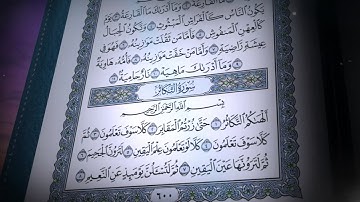 يَكُونُ ٱلنَّاسُ كَٱلْفَرَاشِ ٱلْمَبْثُوثِ ٤ وَتَكُونُ ٱلْجِبَالُ
كَٱلْعِهْنِ ٱلْمَنفُوشِ ٥ فَأَمَّا مَن ثَقُلَتْ مَوَٰزِينُهُۥ ٦ فَهُوَ فِى
عِيشَةٍ رَّاضِيَةٍ ٧ وَأَمَّا مَنْ خَفَّتْ مَوَٰزِينُهُۥ ٨ فَأُمُّهُۥ هَاوِيَةٌ
٩ وَمَآ أَدْرَىٰكَ مَا هِيَهْ ١٠ نَارٌ حَامِيَةٌۢ ١١
سُورَةُ التَّكَاثُرِ
بِسْمِ ٱللَّهِ ٱلرَّحْمَٰنِ ٱلرَّحِيمِ
أَلْهَىٰكُمُ ٱلتَّكَاثُرُ ١ حَتَّىٰ زُرْتُمُ ٱلْمَقَابِرَ ٢ كَلَّا سَوْفَ تَعْلَمُونَ ٣
ثُمَّ كَلَّا سَوْفَ تَعْلَمُونَ ٤ كَلَّا لَوْ تَعْلَمُونَ عِلْمَ ٱلْيَقِينِ ٥ لَتَرَوُنَّ ٱلْجَحِيمَ ٦
ثُمَّ لَتَرَوُنَّهَا عَيْنَ ٱلْيَقِينِ ٧ ثُمَّ لَتُسْـَٔلُنَّ يَوْمَئِذٍ عَنِ ٱلنَّعِيمِ ٨
٦٠٠